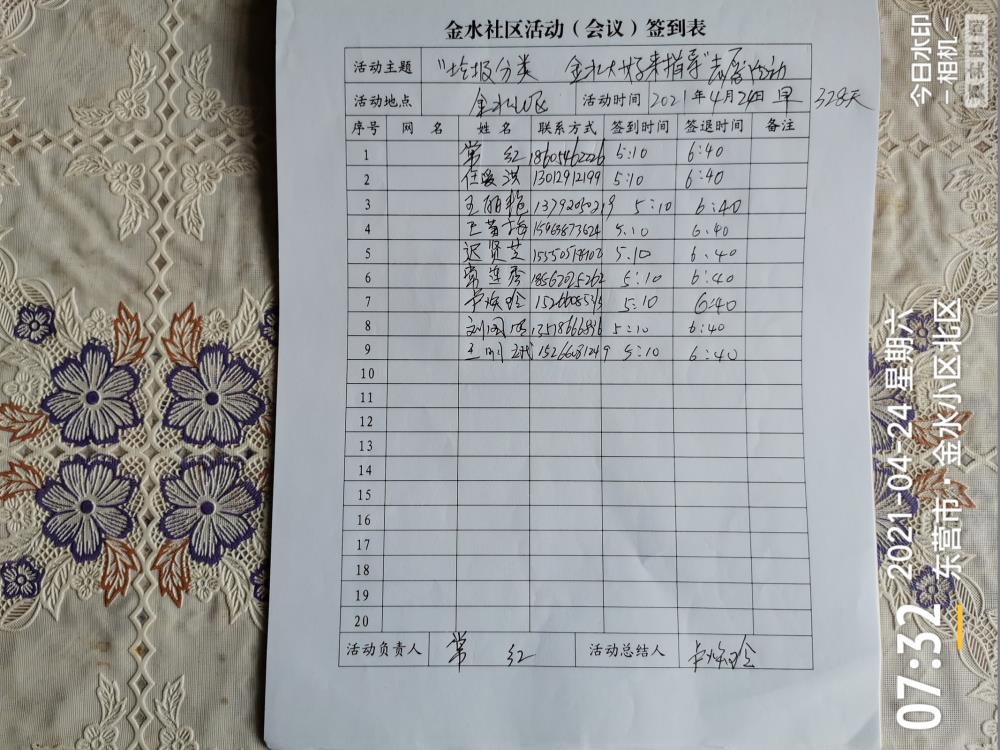 金水社区活动（会议）签到表
活动主题 "垃圾分类 金水大嫂来指导"志愿活动
活动地点 金水小区 活动时间 2021年4月24日 早 328天
序号 网名 姓名 联系方式 签到时间 签退时间 备注
1 常红 18605462226 5:10 6:40
2 任爱洪 13012912199 5:10 6:40
3 王丽艳 13792050219 5:10 6:40
4 5:10 6:40
5 迟贤芝 5:10 6:40
6 常莲秀 18562025262 5:10 6:40
7 卢焕玲 5:10 6:40
8 刘国 13518666896 5:10 6:40
9 王明 15266081249 5:10 6:40
10
11
12
13
14
15
16
17
18
19
20
活动负责人 常红 活动总结人 卢焕玲
今日水印
-相机-
07:32
2021-04-24 星期六
东营市·金水小区北区